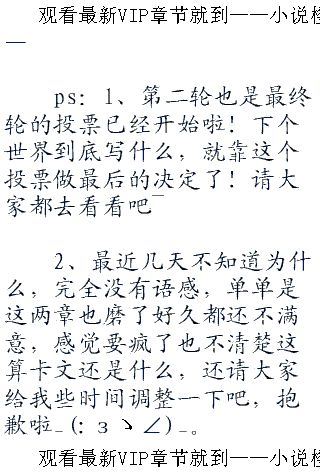 观看最新VIP章节就到——小说
—
ps：1、第二轮也是最终
轮的投票已经开始啦！下个
世界到底写什么，就靠这个
投票做最后的决定了！请大
家都去看看吧¯
2、最近几天不知道为什
么，完全没有语感，单单是
这两章也磨了好久都还不满
意，感觉要疯了也不清楚这
算卡文还是什么，还请大家
给我些时间调整一下吧，抱
歉啦_(:з ヽ∠)_。
观看最新VIP章节就到——小说